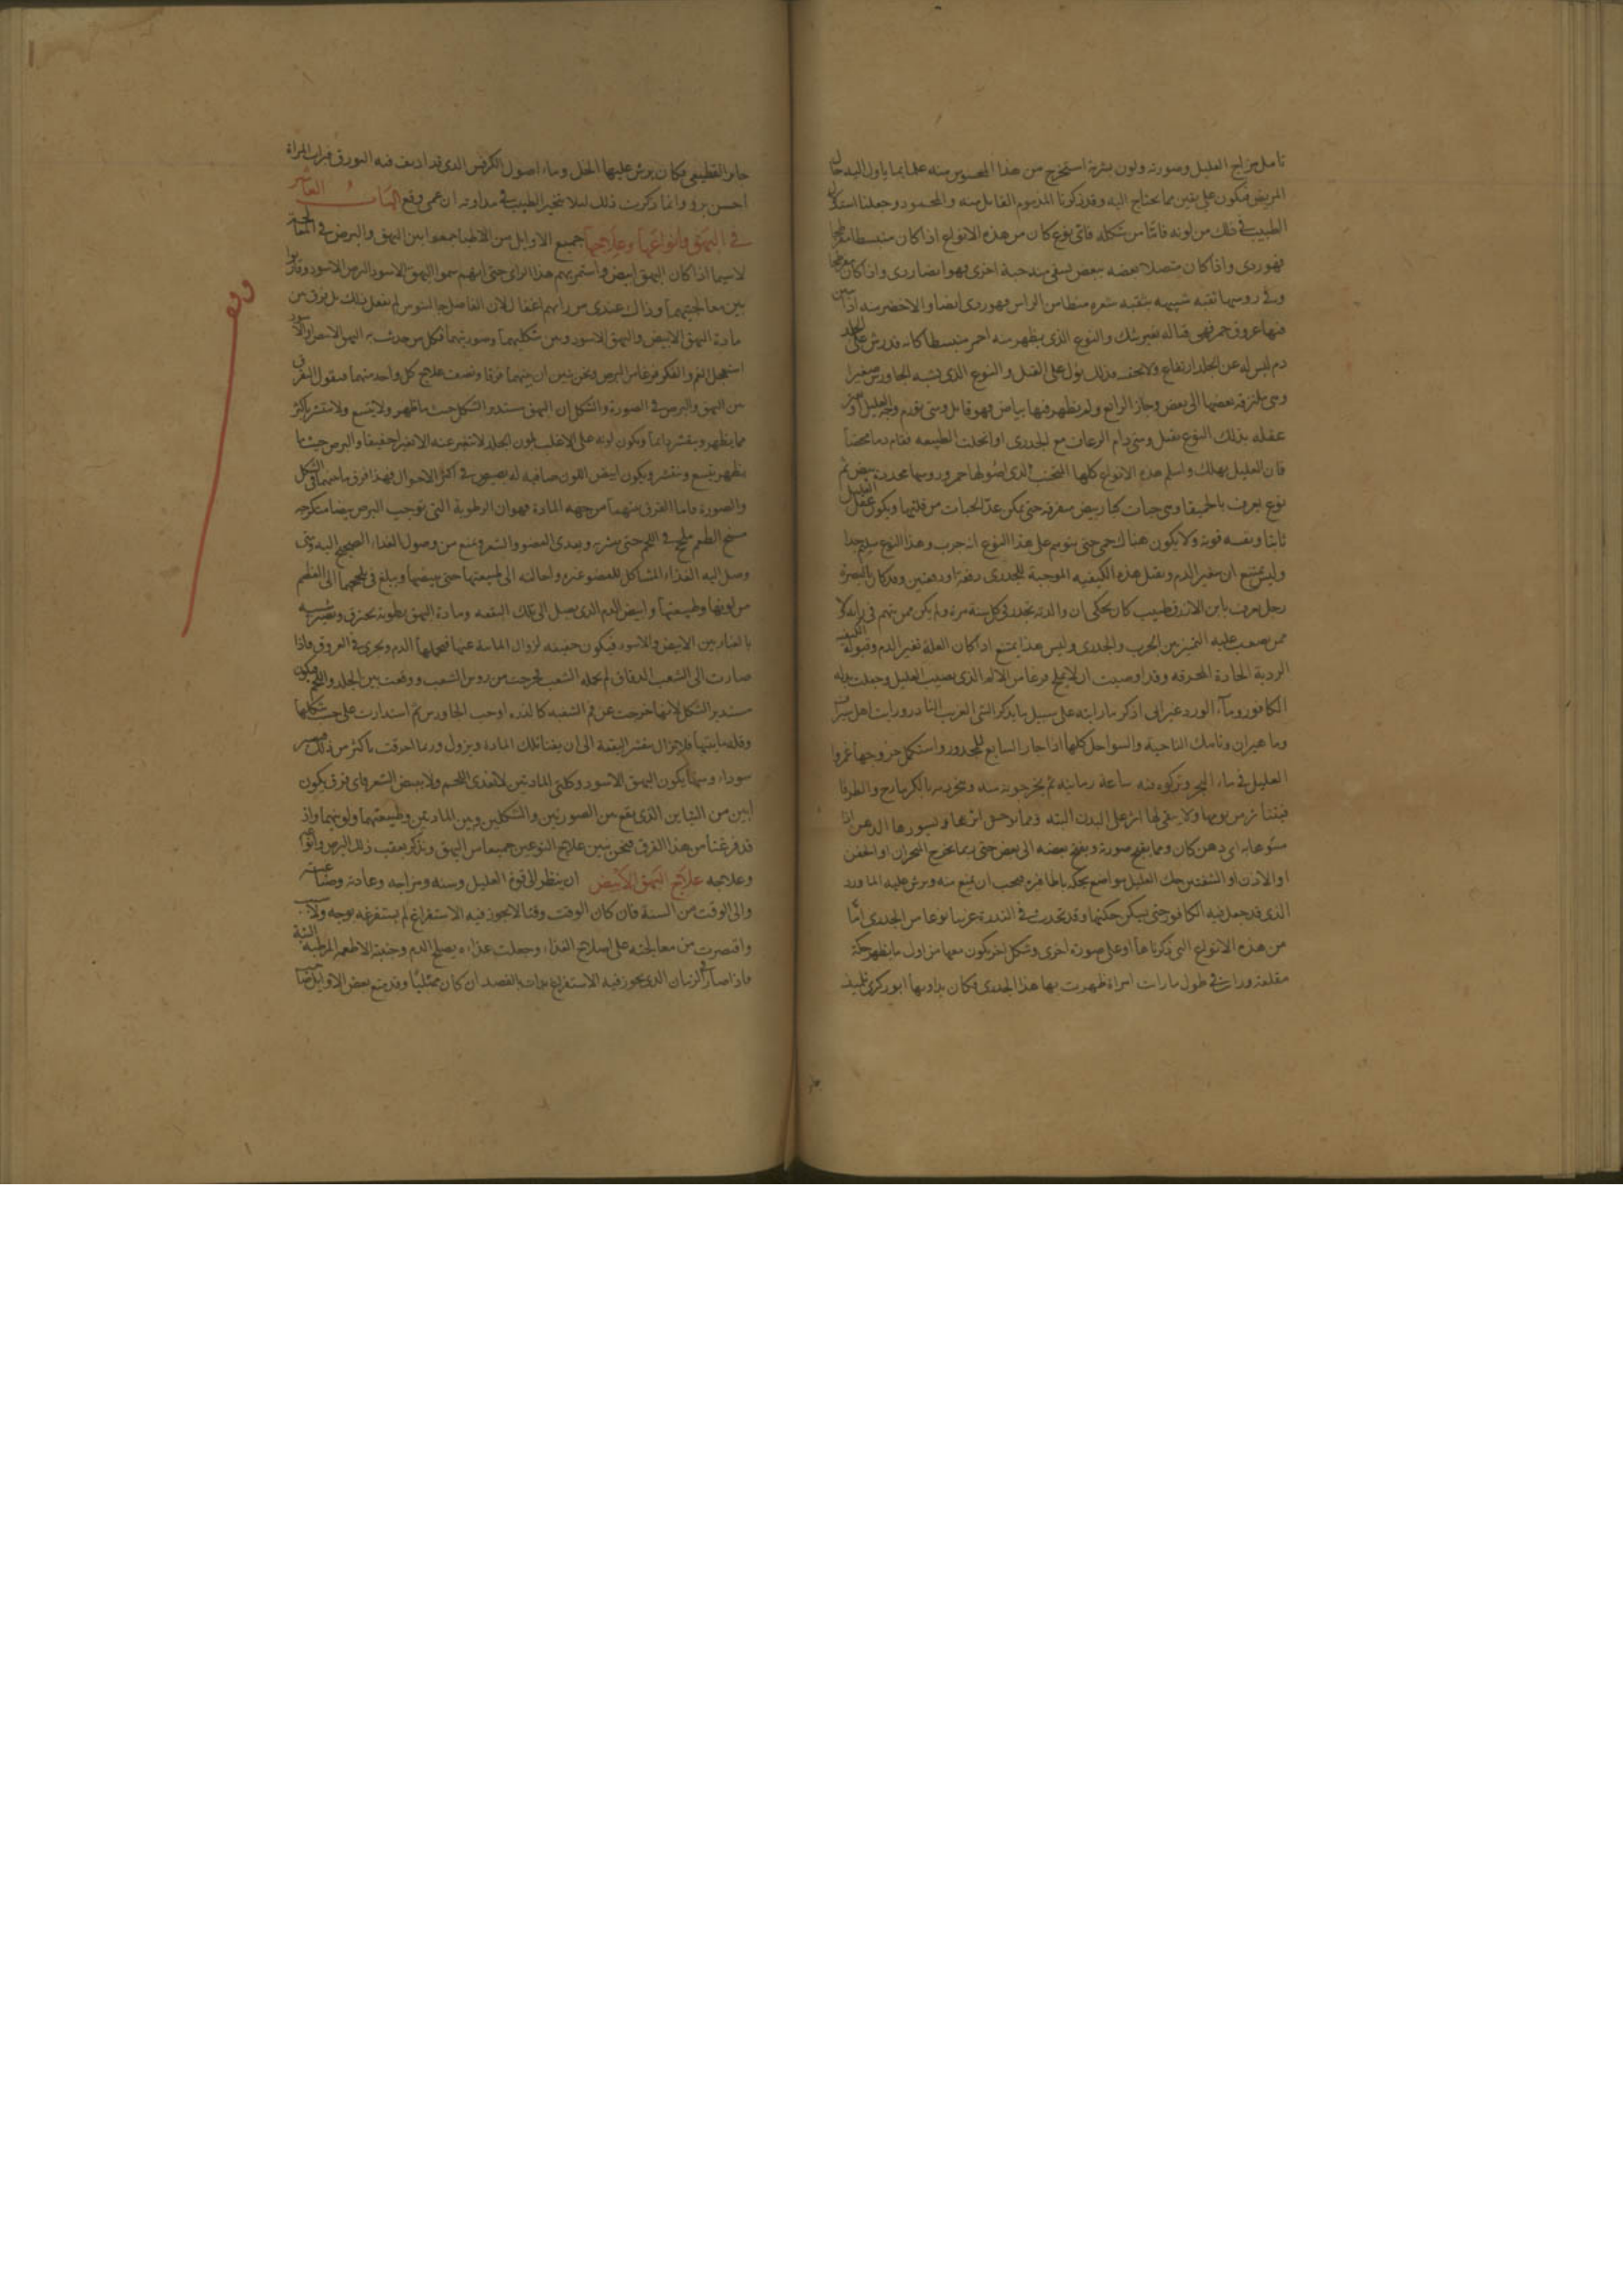 تامل مزاج العليل وصورته ولون بشرته استخرج من هذا المحسوس منه علما بما ياول اليه حال
المريض فيكون على يقين مما يحتاج اليه وقد ذكرنا المذموم القاتل منه والمحمود وجعلنا استدلال
الطبيب في ذلك من لونه فاما من شكله فاي نوع كان من هذه الانواع اذا كان منبسطا
فهو ردي واذا كان متصلا بعضه ببعض حبة اخرى فهو ايضا ردي واذا كان
وفي روسها ثقبه شبيهه بثقبه شعره من الراس فهو ردي ايضا والاخضر منه اذا
فيها عروق حمر فهي قتاله بغير شك والنوع الذي يظهر منه احمر منبسطا كانه قد رش على الجلد
دم ليس له عن الجلد ارتفاع ولا يجف فذلك يؤل على القتل والنوع الذي يشبه الجاورس صغيرا
ومتى يلتزق بعضها الى بعض وجاز الرابع ولم يظهر فيها بياض فهو قاتل ومتى
عقله بذلك النوع يقتل ومتى دام الرعاف مع الجدري او انحلت الطبيعه فقام دما محضا
فان العليل يهلك واسلم هذه الانواع كلها الذي اصولها حمر وروسها محددة بيض ثم
نوع يعرف بالحميقا وهي حبات كبار بيض متفرقه حتى يمكن عد الحبات من قلتها ويكون عقل العليل
ثابتا ونفسه قوية ولا يكون هناك حمى حتى يتوهم على هذا النوع انه جرب وهذا النوع سليم جدا
وليس يمتنع ان يتغير الدم ويقبل هذه الكيفيه الموجبة للجدري دفعة او دفعتين وقد كان بالبصرة
رجل يعرف بابن الازرق طبيب كان يحكي ان والدته تجدر في كل سنة مرة ولم يكن ممن يتهم في
ممن يصعب عليه التمييز بين الجرب والجدري وليس هذا يمتنع اذا كان العلة تغير الدم وقبوله الكيفية
الردية الحادة المحرقه وقد اوصيت ان لا
الكافور وماء الورد غير اني اذكر ما رايته على سبيل ما يذكر الشي الغريب النادر ورايت اهل سيراف
وما هيران وتامك الناحية والسواحل كلها اذا جاز السابع للمجدور واستكمل خروجها غمروا
العليل في ماء البحر وتركوه فيه ساعة زمانيه ثم يخرجونه منه ويبخرونه بالكزمازج والطرفا
من يومها ولا يبقى لها اثر على البدن البته
اي دهن كان ومما يقبح صورته ويفتح بعضه الى بعض حتى ربما يخرج المنخران او الجفن
او الاذن او الشفتين حك العليل مواضع بحكه باظافيره فيجب ان يمنع منه ويرش عليه الماورد
الذي قد جعل فيه الكافور حتى يسكن حكتها وقد يحدث في الندرة غريبا نوعا من الجدري اما
من هذه الانواع التي ذكرناها او على صورة اخرى وشكل اخر يكون معها من اول ما يظهر حكة
مقلقة ورايت في طول ما رايت امراة ظهرت بها هذا الجدري فكان يداويها ابو زكري تلميذ
جابر القطيعي فكان يرش عليها الخل وماء اصول الكرفس الذي قد اديف فيه البورق فبرات المراة
احسن برو وانما ذكرت ذلك ليلا يتحير الطبيب في مداوته ان عمي وقع الباب العاشر
في البهق وانواعها وعلاجها جميع الاوايل من الاطبا جمعوا بين البهق والبرص في المعالجة
لاسيما اذا كان البهق ابيض واستمر بهم هذا الراي حتى انهم سموا البهق الاسود البرص الاسود وقاربوا
بين معالجتيهما وذاك عندي من رايهم اغفال لان الفاضل جالينوس لم يفعل ذلك بل فرق بين
مادة البهق الابيض والبهق الاسود وبين شكليهما وصورتيهما فكل من حدث به البهق الابيض والاسود
استعجل الغم والفكر فزعا من البرص ونحن نبين ان بينهما فرقا ونصف علاج كل واحد منهما فنقول الفرق
بين البهق والبرص في الصورة والشكل ان البهق مستدير الشكل حيث ما ظهر ولا يتسع ولا ينتشر باكثر
مما يظهر ويتقشر دائما ويكون لونه على الاغلب بلون الجلد لا يتغير عنه الا تغيرا خفيفا والبرص حيثما
يظهر يتسع وينتشر ويكون ابيض اللون صافيه له بصيص في اكثر الاحوال فهذا فرق ما بينهما في الشكل
والصورة واما الفرق بينهما من جهة المادة فهو ان الرطوبة التي توجب البرص بيضا متكرجه
مسخ الطعم في اللحم حتى ويغذي العضو والشعر ويمنع من وصول الغذاء الصحيح اليه ومتى
وصل اليه الغذاء المشاكل للعضو غيره واحاله الى طبيعتها حتى يبيضها ويبلغ في الى العظم
من لونها وطبيعتها وابيض الدم الذي يصل الى تلك البقعه ومادة البهق رطوبة تحترق وتصير شبيه
بالغبار بين الابيض والاسود فيكون خفيفه لزوال المائية عنها فيحملها الدم ويجري في العروق فاذا
صارت الى الشعب الدقاق لم تحمله الشعب فخرجت من روس الشعب ووقعت بين الجلد واللحم فيكون
مستدير الشكل لانها خرجت عن فم الشعبه كالغدره اوحب الجاورس ثم استدارت على شكلها
وقله مايتها فلا تزال تقشر البقعة الى ان يفنى تلك المادة ويزول وربما احرقت باكثر من ذلك فتصير
سوداء ومنها يكون البهق الاسود وكلتى المادتين لا تغذي اللحم ولا تبيض الشعر فاي فرق يكون
ابين من التباين الذي يقع بين الصورتين والشكلين وبين المادتين وطبيعتهما ولونيهما واذ
قد فرغنا من هذا الفرق فنحن نبين علاج النوعين جميعا من البهق ونذكر بعقب ذلك البرص وانواعه
وعلاجه علاج البهق الابيض ان ينظر الى قوة العليل وسنه ومزاجه وعادته وصناعته
والى الوقت من السنة فان كان الوقت وقتا لا يجوز فيه الاستفراغ لم يستفرغه بوجه ولا سبب
واقتصرت من معالجته على اصلاح الغذاء وجعلت غذاءه يصلح الدم وجنبته الاطعمه المرطبة البتة
فاذا صار الزمان الذي يجوز فيه الاستفراغ بدات بالفصد ان كان ممتليا وقد منع بعض الاوايل